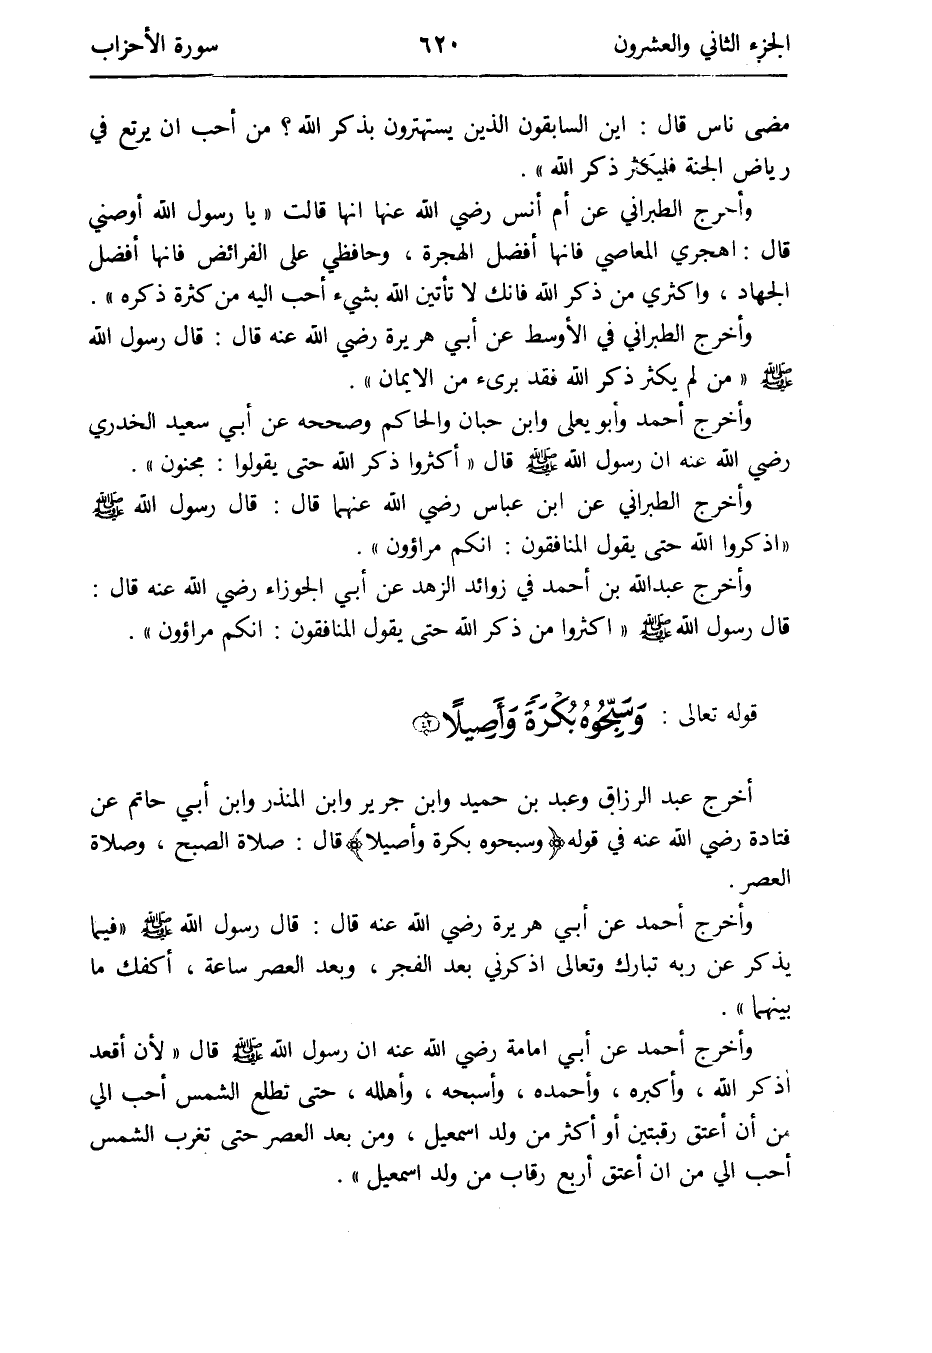 الجزء الثاني والعشرون ٦٢٠ سورة الأحزاب
مضى ناس قال : اين السابقون الذين يستهترون بذكر الله ؟ من أحب ان يرتع في
رياض الجنة فليكثر ذكر الله » .
وأخرج الطبراني عن أم أنس رضي الله عنها انها قالت « يا رسول الله أوصني
قال : اهجري المعاصي فانها أفضل الهجرة ، وحافظي على الفرائض فانها أفضل
الجهاد ، واكثري من ذكر الله فانك لا تأتين الله بشيء أحب اليه من كثرة ذكره » .
وأخرج الطبراني في الأوسط عن أبي هريرة رضي الله عنه قال : قال رسول الله
ﷺ « من لم يكثر ذكر الله فقد برىء من الايمان » .
وأخرج أحمد وأبو يعلى وابن حبان والحاكم وصححه عن أبي سعيد الخدري
رضي الله عنه ان رسول الله ﷺ قال « أكثروا ذكر الله حتى يقولوا : مجنون » .
وأخرج الطبراني عن ابن عباس رضي الله عنهما قال : قال رسول الله ﷺ
«اذكروا الله حتى يقول المنافقون : انكم مراؤون » .
وأخرج عبدالله بن أحمد في زوائد الزهد عن أبي الجوزاء رضي الله عنه قال :
قال رسول الله ﷺ « اكثروا من ذكر الله حتى يقول المنافقون : انكم مراؤون » .
قوله تعالى : وَسَبِّحُوهُ بُكْرَةً وَأَصِيلًا ﴿٤٢﴾
أخرج عبد الرزاق وعبد بن حميد وابن جرير وابن المنذر وابن أبي حاتم عن
قتادة رضي الله عنه في قوله ﴿وسبحوه بكرة وأصيلا﴾ قال : صلاة الصبح ، وصلاة
العصر .
وأخرج أحمد عن أبي هريرة رضي الله عنه قال : قال رسول الله ﷺ «فيما
يذكر عن ربه تبارك وتعالى اذكرني بعد الفجر ، وبعد العصر ساعة ، أكفك ما
بينهما » .
وأخرج أحمد عن أبي امامة رضي الله عنه ان رسول الله ﷺ قال « لأن أقعد
أذكر الله ، وأكبره ، وأحمده ، وأسبحه ، وأهلله ، حتى تطلع الشمس أحب الي
من أن أعتق رقبتين أو أكثر من ولد اسمعيل ، ومن بعد العصر حتى تغرب الشمس
أحب الي من ان أعتق أربع رقاب من ولد اسمعيل » .